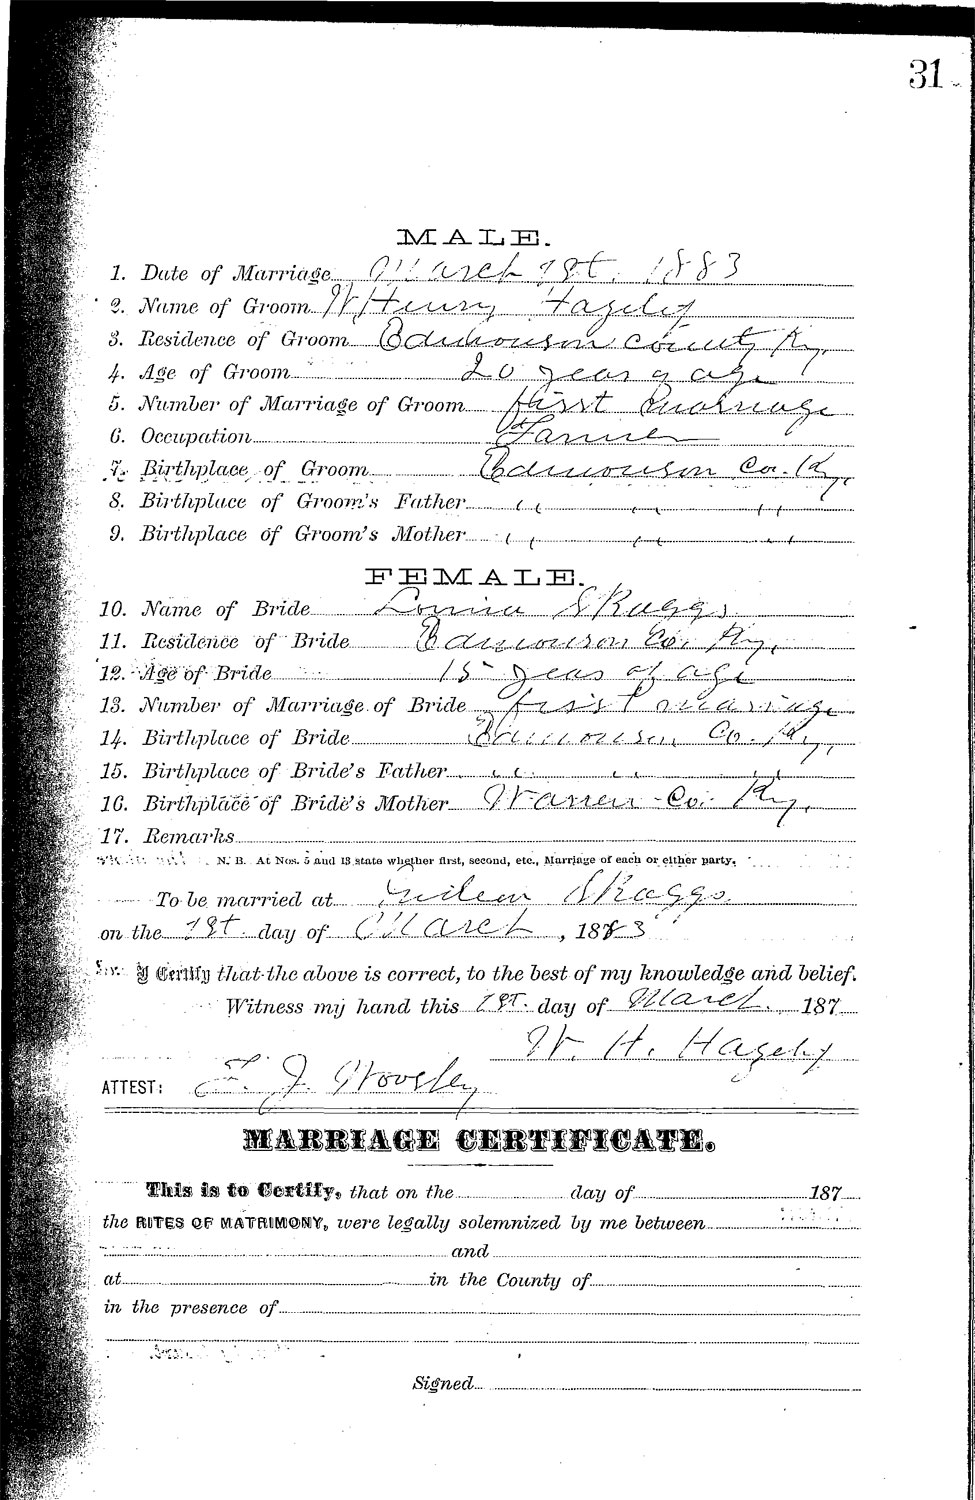 31
MALE.
1. Date of Marriage March 1st. 1883
2. Name of Groom W, Henry Hazelip
3. Residence of Groom Edmonson County Ky.
4. Age of Groom 20 years of age
5. Number of Marriage of Groom first marriage
6. Occupation Farmer
7. Birthplace of Groom Edmonson Co. Ky,
8. Birthplace of Groom's Father " " "
9. Birthplace of Groom's Mother " " "
FEMALE.
10. Name of Bride Skaggs
11. Residence of Bride Edmonson Co. Ky,
12. Age of Bride 15 years of age
13. Number of Marriage of Bride first marriage
14. Birthplace of Bride Edmonson Co. Ky,
15. Birthplace of Bride's Father " " "
16. Birthplace of Bride's Mother Warren Co. Ky,
17. Remarks
N. B. At Nos. 5 and 13 state whether first, second, etc., Marriage of each or either party.
To be married at Skaggs
on the 1st. day of March, 1883
I Certify that the above is correct, to the best of my knowledge and belief.
Witness my hand this 1st. day of March 187
W. H. Hazelip
ATTEST: J. Woosley
MARRIAGE CERTIFICATE.
This is to Certify, that on the day of 187
the RITES OF MATRIMONY, were legally solemnized by me between
and
at in the County of
in the presence of
Signed